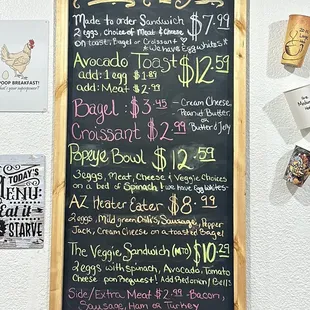 Made to order Sandwich $7.99
2 eggs, choice of Meat & Cheese
on toast, Bagel or Croissant
★ we Have Egg whites ★
Avocado Toast $12.59
add: 1 egg $1.89
add: Meat $2.99
Bagel: $3.45 - Cream Cheese,
Peanut Butter,
or
Butter & Jelly
Croissant $2.99
Popeye Bowl $12.59
3 eggs, Meat, Cheese & Veggie choices
on a bed of Spinach! we have Egg Whites
AZ Heater Eater $8.99
2 eggs, Mild green Chili's, Sausage, Pepper
Jack, Cream Cheese on a toasted Bagel
The Veggie Sandwich (MTO) $10.29
2 eggs with spinach, Avocado, Tomato
Cheese upon Request! Add Red onion / Bell's
Side/Extra Meat $2.99 - Bacon,
Sausage, Ham or Turkey
POOP BREAKFAST!
What's your superpower?
TODAY'S
MENU:
Eat it
or
STARVE